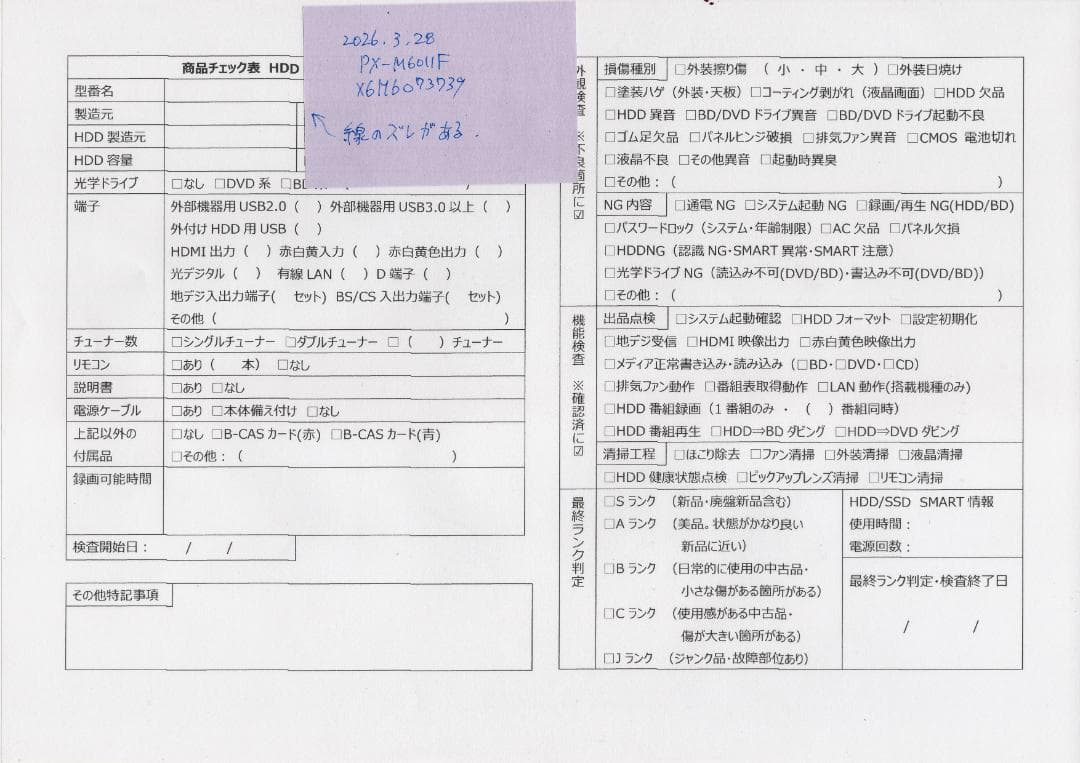 2026.3.28
PX-M6011F
X6M6073739
線のズレがある.
商品チェック表 HDD
型番名
製造元
HDD 製造元
HDD 容量
光学ドライブ □なし □DVD 系
端子 外部機器用 USB2.0（ ）外部機器用 USB3.0 以上（ ）
外付け HDD 用 USB（ ）
HDMI 出力（ ）赤白黄入力（ ）赤白黄色出力（ ）
光デジタル（ ） 有線 LAN（ ）D 端子（ ）
地デジ入出力端子( セット) BS/CS 入出力端子( セット)
その他（ ）
チューナー数 □シングルチューナー □ダブルチューナー □（ ）チューナー
リモコン □あり（ 本）□なし
説明書 □あり □なし
電源ケーブル □あり □本体備え付け □なし
上記以外の付属品 □なし □B-CAS カード(赤) □B-CAS カード(青)
□その他：（ ）
録画可能時間
検査開始日： / /
その他特記事項
外観検査 ※不良箇所に☑
損傷種別 □外装擦り傷 （ 小 ・ 中 ・ 大 ）□外装日焼け
□塗装ハゲ（外装・天板）□コーティング剥がれ（液晶画面）□HDD 欠品
□HDD 異音 □BD/DVD ドライブ異音 □BD/DVD ドライブ起動不良
□ゴム足欠品 □パネルヒンジ破損 □排気ファン異音 □CMOS 電池切れ
□液晶不良 □その他異音 □起動時異臭
□その他：（ ）
NG 内容 □通電 NG □システム起動 NG □録画/再生 NG(HDD/BD)
□パスワードロック（システム・年齢制限）□AC 欠品 □パネル欠損
□HDDNG（認識 NG・SMART 異常・SMART 注意）
□光学ドライブ NG（読込み不可(DVD/BD)・書込み不可(DVD/BD)）
□その他：（ ）
機能検査 ※確認済に☑
出品点検 □システム起動確認 □HDD フォーマット □設定初期化
□地デジ受信 □HDMI 映像出力 □赤白黄色映像出力
□メディア正常書き込み・読み込み（□BD・□DVD・□CD）
□排気ファン動作 □番組表取得動作 □LAN 動作(搭載機種のみ)
□HDD 番組録画（1 番組のみ ・ （ ）番組同時）
□HDD 番組再生 □HDD⇒BD ダビング □HDD⇒DVD ダビング
清掃工程 □ほこり除去 □ファン清掃 □外装清掃 □液晶清掃
□HDD 健康状態点検 □ピックアップレンズ清掃 □リモコン清掃
最終ランク判定
□S ランク （新品・廃盤新品含む）
□A ランク （美品。状態がかなり良い
新品に近い）
□B ランク （日常的に使用の中古品・
小さな傷がある箇所がある）
□C ランク （使用感がある中古品・
傷が大きい箇所がある）
□J ランク （ジャンク品・故障部位あり）
HDD/SSD SMART 情報
使用時間：
電源回数：
最終ランク判定・検査終了日
/ /